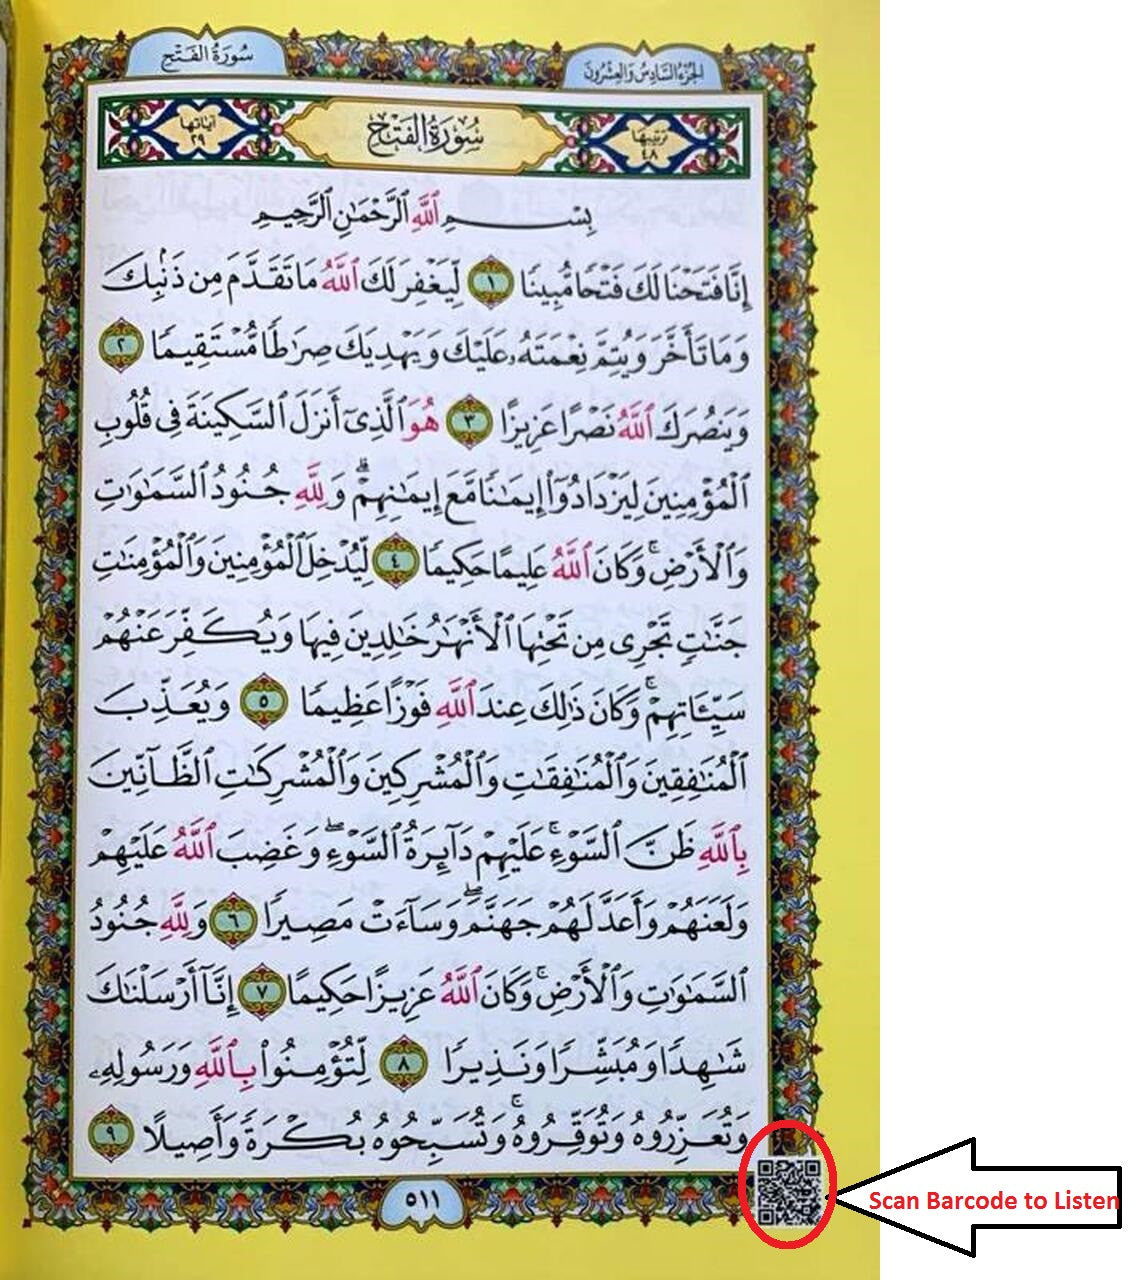 سُورَةُ الفَتْحِ
الجُزْءُ السَّادِسُ وَالعِشْرُونَ
ترتيبها ٤٨ سُورَةُ الفَتْحِ آياتها ٢٩
بِسْمِ ٱللَّهِ ٱلرَّحْمَٰنِ ٱلرَّحِيمِ
إِنَّا فَتَحْنَا لَكَ فَتْحًا مُّبِينًا ١ لِّيَغْفِرَ لَكَ ٱللَّهُ مَا تَقَدَّمَ مِن ذَنۢبِكَ
وَمَا تَأَخَّرَ وَيُتِمَّ نِعْمَتَهُۥ عَلَيْكَ وَيَهْدِيَكَ صِرَٰطًا مُّسْتَقِيمًا ٢
وَيَنصُرَكَ ٱللَّهُ نَصْرًا عَزِيزًا ٣ هُوَ ٱلَّذِىٓ أَنزَلَ ٱلسَّكِينَةَ فِى قُلُوبِ
ٱلْمُؤْمِنِينَ لِيَزْدَادُوٓا۟ إِيمَٰنًا مَّعَ إِيمَٰنِهِمْ ۗ وَلِلَّهِ جُنُودُ ٱلسَّمَٰوَٰتِ
وَٱلْأَرْضِ ۚ وَكَانَ ٱللَّهُ عَلِيمًا حَكِيمًا ٤ لِّيُدْخِلَ ٱلْمُؤْمِنِينَ وَٱلْمُؤْمِنَٰتِ
جَنَّٰتٍ تَجْرِى مِن تَحْتِهَا ٱلْأَنْهَٰرُ خَٰلِدِينَ فِيهَا وَيُكَفِّرَ عَنْهُمْ
سَيِّـَٔاتِهِمْ ۚ وَكَانَ ذَٰلِكَ عِندَ ٱللَّهِ فَوْزًا عَظِيمًا ٥ وَيُعَذِّبَ
ٱلْمُنَٰفِقِينَ وَٱلْمُنَٰفِقَٰتِ وَٱلْمُشْرِكِينَ وَٱلْمُشْرِكَٰتِ ٱلظَّآنِّينَ
بِٱللَّهِ ظَنَّ ٱلسَّوْءِ ۚ عَلَيْهِمْ دَآئِرَةُ ٱلسَّوْءِ ۖ وَغَضِبَ ٱللَّهُ عَلَيْهِمْ
وَلَعَنَهُمْ وَأَعَدَّ لَهُمْ جَهَنَّمَ ۖ وَسَآءَتْ مَصِيرًا ٦ وَلِلَّهِ جُنُودُ
ٱلسَّمَٰوَٰتِ وَٱلْأَرْضِ ۚ وَكَانَ ٱللَّهُ عَزِيزًا حَكِيمًا ٧ إِنَّآ أَرْسَلْنَٰكَ
شَٰهِدًا وَمُبَشِّرًا وَنَذِيرًا ٨ لِّتُؤْمِنُوا۟ بِٱللَّهِ وَرَسُولِهِۦ
وَتُعَزِّرُوهُ وَتُوَقِّرُوهُ ۚ وَتُسَبِّحُوهُ بُكْرَةً وَأَصِيلًا ٩
٥١١
Scan Barcode to Listen